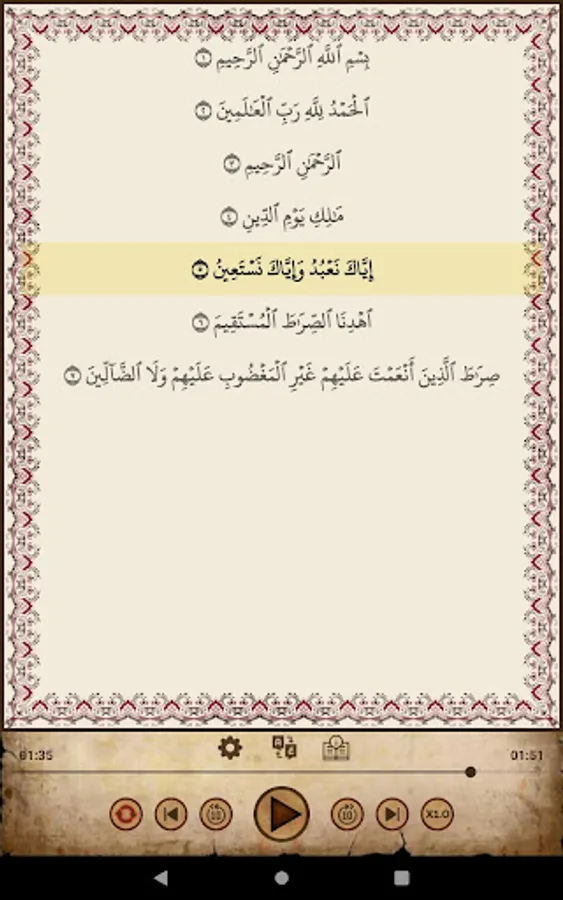 بِسْمِ ٱللَّهِ ٱلرَّحْمَٰنِ ٱلرَّحِيمِ ١
ٱلْحَمْدُ لِلَّهِ رَبِّ ٱلْعَٰلَمِينَ ٢
ٱلرَّحْمَٰنِ ٱلرَّحِيمِ ٣
مَٰلِكِ يَوْمِ ٱلدِّينِ ٤
إِيَّاكَ نَعْبُدُ وَإِيَّاكَ نَسْتَعِينُ ٥
ٱهْدِنَا ٱلصِّرَٰطَ ٱلْمُسْتَقِيمَ ٦
صِرَٰطَ ٱلَّذِينَ أَنْعَمْتَ عَلَيْهِمْ غَيْرِ ٱلْمَغْضُوبِ عَلَيْهِمْ وَلَا ٱلضَّآلِّينَ ٧
01:35 01:51
10 10 X1.0